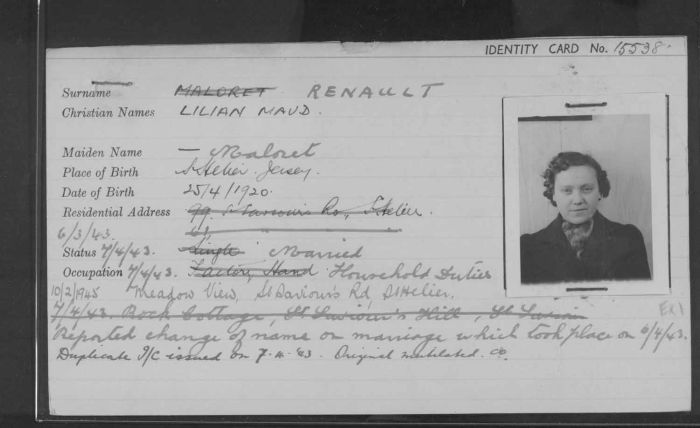 IDENTITY CARD No. 15538
Surname MALORET RENAULT
Christian Names LILIAN MAUD.
Maiden Name — Maloret
Place of Birth St Helier Jersey.
Date of Birth 25/4/1920.
Residential Address 99 St Saviours Rd, St Helier.
6/3/43.
Status 7/4/43. Single Married
Occupation 7/4/43. Factory Hand Household Duties
10/2/1945 Meadow View, St Saviour's Rd, St Helier.
7/4/43. Rock Cottage, St Saviour's Hill, St
Reported change of name on marriage which took place on 6/4/43.
Duplicate I/C issued on 7.4.43. Original mutilated.